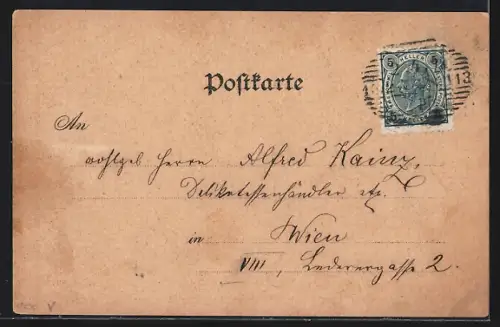 Postkarte
An
wohlgeb Herrn Alfred Kainz,
Delikatessenhändler etz.
in Wien
VIII, Lederergasse 2.
5 HELLER 5
113